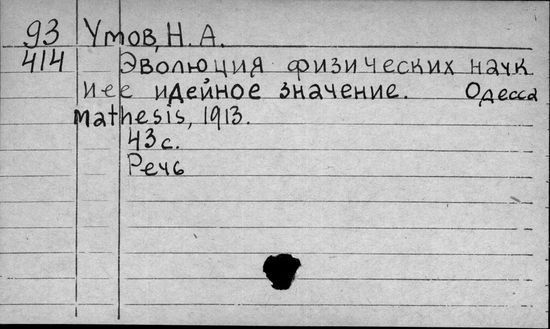 93 Умов, Н. А.
414 Эволюция физических наук
и ее идейное значение. Одесса
mathesis, 1913.
43 с.
Речь